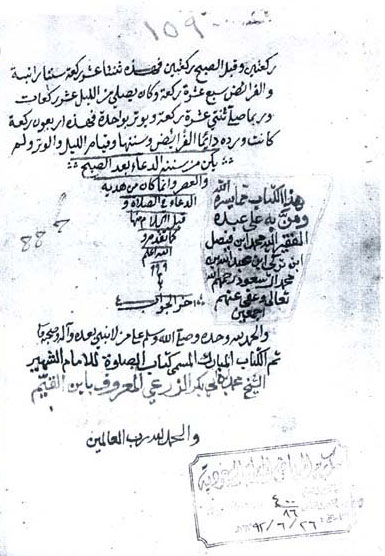 ١٥٩
ركعتين وقبل الصبح ركعتين فهذه ثنتا عشر ركعة سننا راتبة
والفرائض سبع عشرة ركعة وكان يصلي من الليل عشر ركعات
وربما صلا ثنتي عشرة ركعة ويوتر بواحدة فهذه اربعون ركعة
كانت ورده دايما الفرائض وسننها وقيام الليل والوتر ولم
يكن من سنته الدعاء بعد الصبح
والعصر وانما كان من هديه
الدعاء في الصلاة و
قبل السلام منها
كما تقدم و
الله اعلم
آخر الجواب
هذا الكتاب مما يسره الله
ومن به على عبده
المفتقر الى الله محمد ابن فيصل
ابن تركي ابن عبد الله ابن
محمد السعود رحمهم الله
تعالى وعفى عنهم
اجمعين
288
والحمد لله وحده وصلى الله وسلم على من لا نبي بعده وآله وصحبه
تم الكتاب المبارك المسمى كتاب الصلوة للامام الشهير
الشيخ محمد بن ابي بكر الزرعي المعروف بابن القيم
والحمد لله رب العالمين
السعودية
٤٠٠
٨٦
٩٢/٦/٢٦